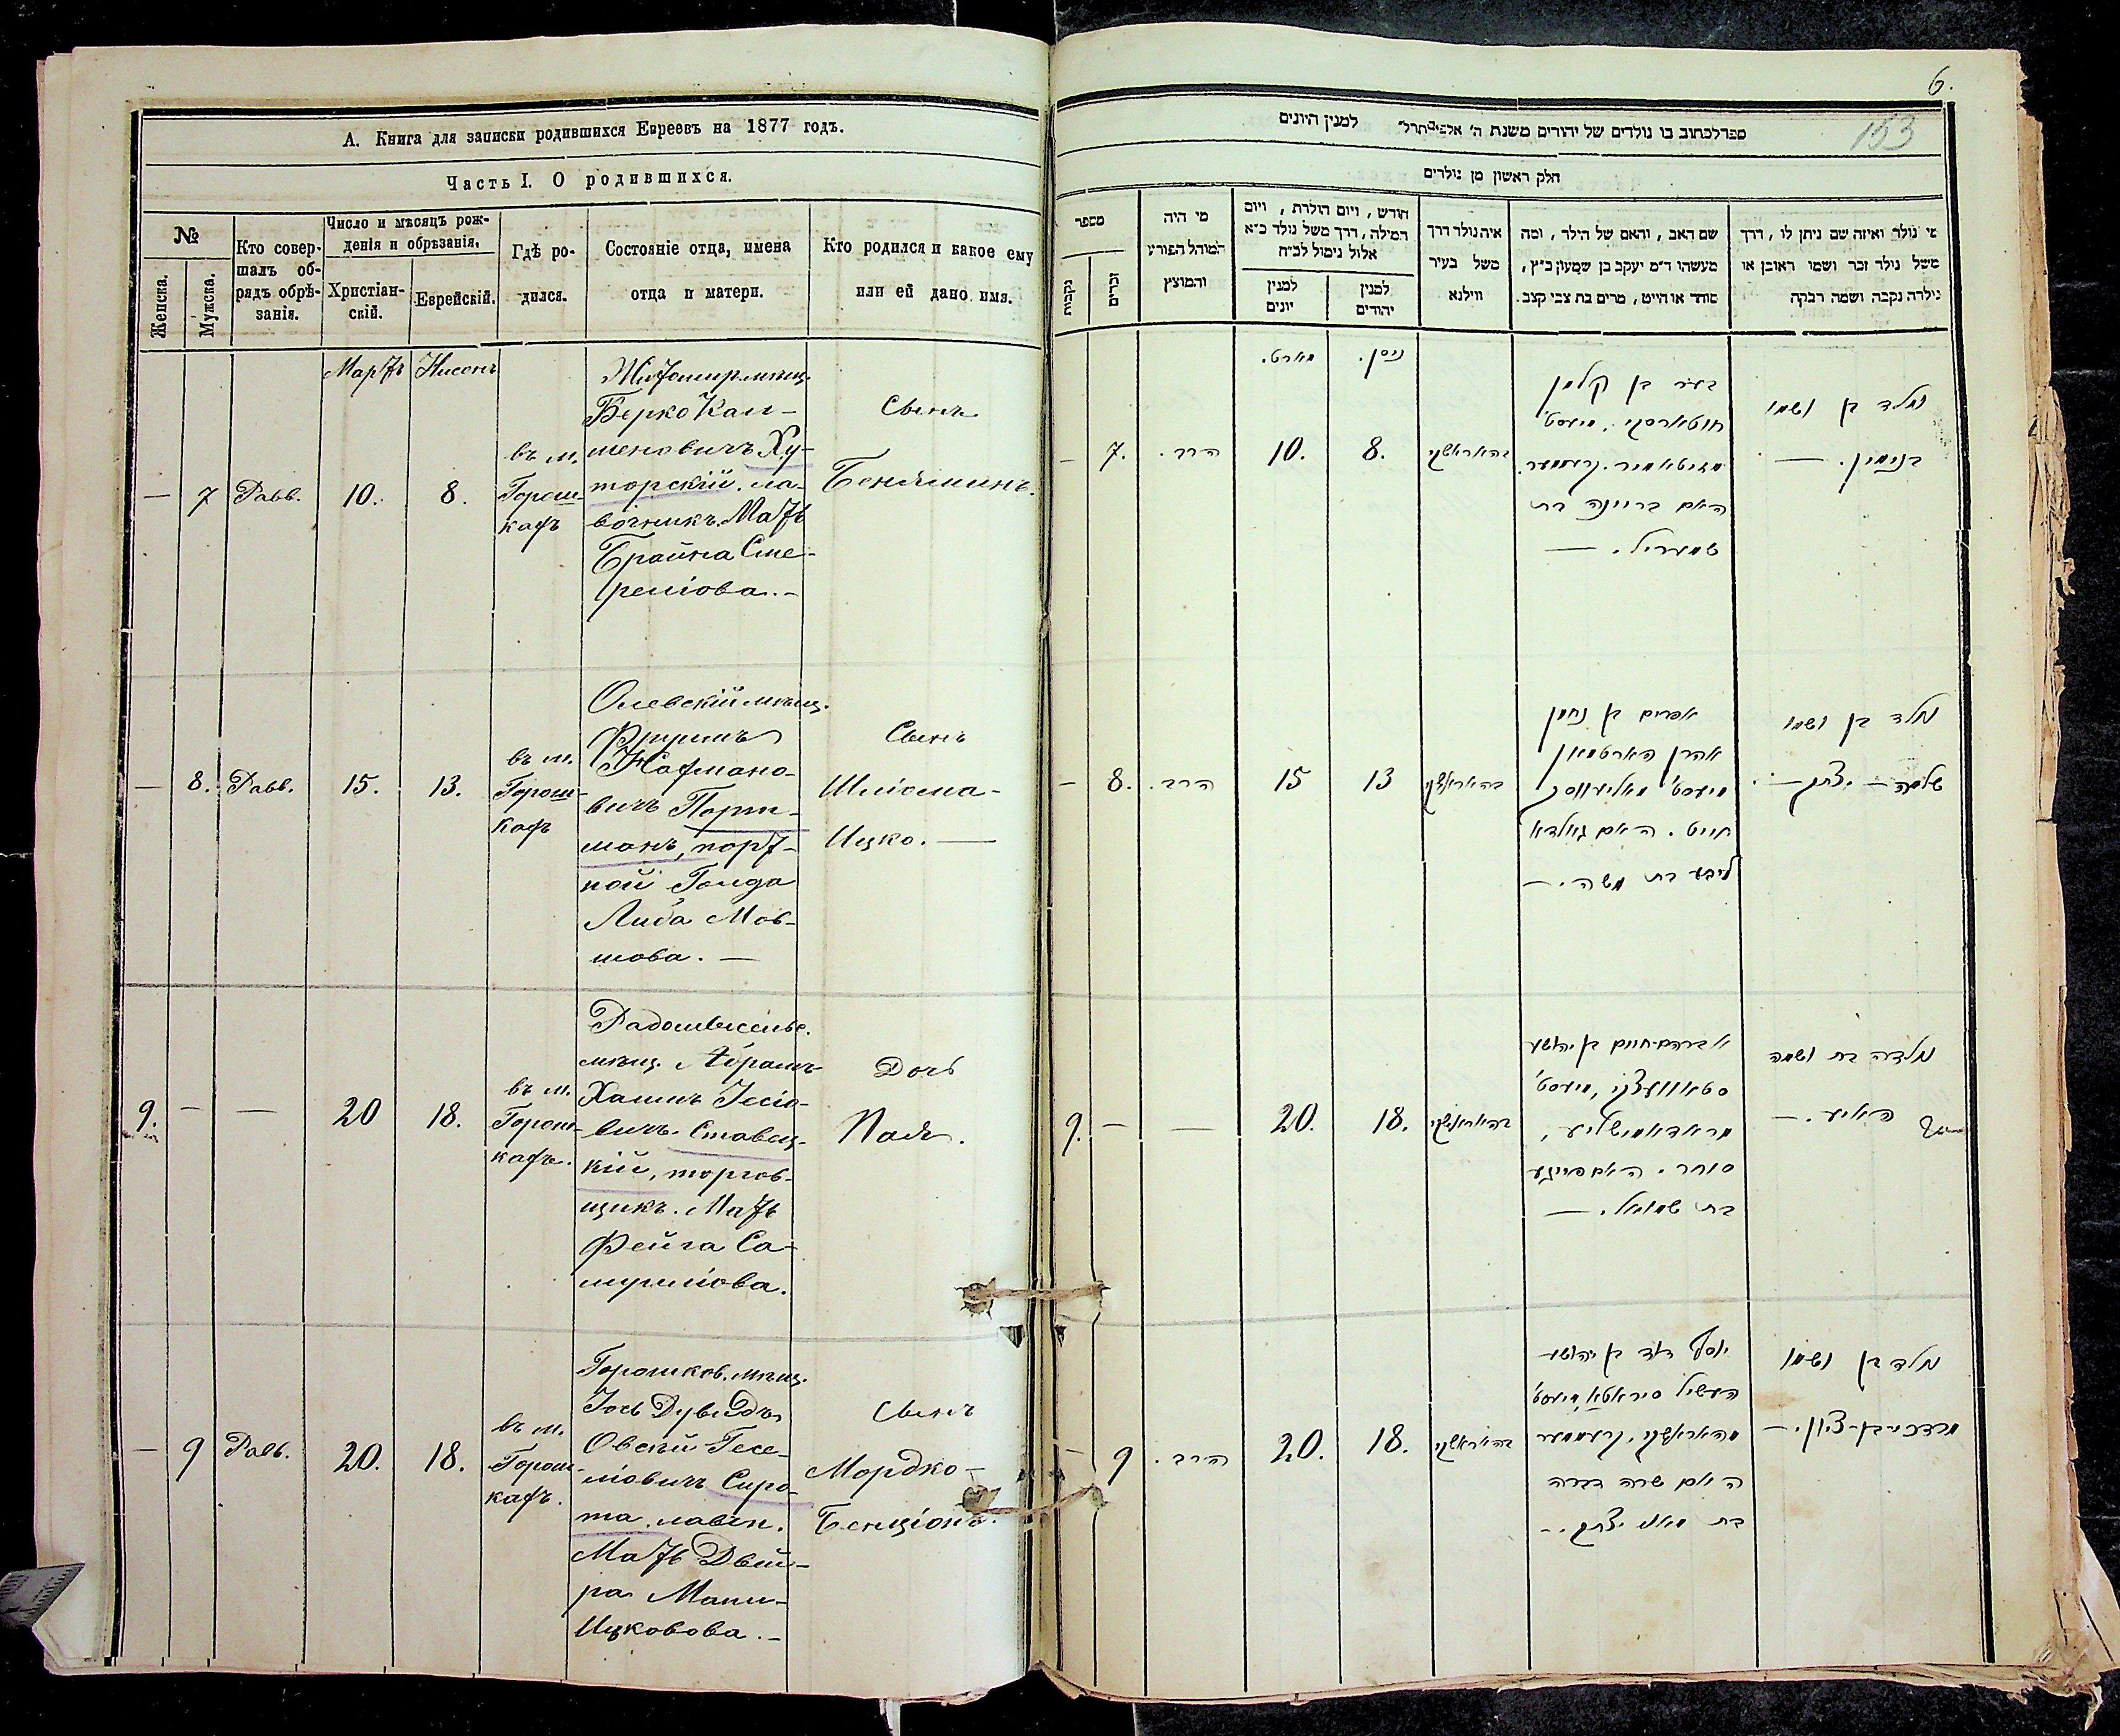 А. Книга для записки родившихся Евреевъ на 1877 годъ.
Часть I. О родившихся.
№
Женска.
Мужска.
Кто совер-
шалъ об-
рядъ обрѣ-
занія.
Число и мѣсяцъ рож-
денія и обрѣзанія.
Христіан-
скій.
Еврейскій.
Гдѣ ро-
дился.
Состояніе отца, имена
отца и матери.
Кто родился и какое ему
или ей дано имя.
Мартъ
Нисонъ
—
7
Равв.
10.
8.
въ м.
Горош-
кахъ
Житомир. мѣщ.
Берко Кал-
меновичъ Ху-
торскій. ла-
вочникъ. Мать
Брайна Сме-
реліова. -
Сынъ
Беніяминъ.
—
8.
Равв.
15.
13.
въ м.
Горош-
кахъ
Олевскій мѣщ.
Фруимъ
Нахмано-
вичъ Порт-
манъ, порт-
ной Голда
Либа Мов-
шова. —
Сынъ
Шліома-
Ицко. —
9.
—
—
20
18.
въ м.
Горош-
кахъ.
Радомысльс.
мѣщ. Абрамъ
Хаимъ Іосіо-
вичъ Ставец-
кій, торгов-
щикъ. Мать
Фейга Са-
муиліова.
Дочь
Пая.
—
9
Равв.
20.
18.
въ м.
Горош-
кахъ.
Горошков. мѣщ.
Іось Дувидъ
Овсѣй Гесе-
ліовичъ Сиро-
та. лавоч.
Мать Двой-
ра Мани-
Ицковова. -
Сынъ
Мордко-
Бенціонъ.
6.
153
למנין היונים
חלק ראשון מן נולדים
מספר
נקבות
זכרים
מי היה
המוהל הפורע
והמוצץ
חודש, ויום הולדת, ויום
המילה, דרך משל נולד כ״א
אלול נימול לכ״ח
למנין
יונים
למנין
יהודים
איה נולד דרך
משל בעיר
ווילנא
שם האב, והאם של הילד, ומה
מעשהו ד״מ יעקב בן שמעון כ״ץ,
סוחר או חייט, מרים בת צבי קצב.
מי נולד ואיזה שם ניתן לו, דרך
משל נולד זכר ושמו ראובן או
נולדה נקבה ושמה רבקה
מארט.
ניסן.
—
7.
הרב.
10.
8.
בער בן קלמן
האם בריינה בת
שמעריל. —
נולד בן ושמו
בנימין. —
—
8.
הרב.
15
13
אפרים בן נחמן
חייט. האם גאלדא
ליבע בת משה. —
נולד בן ושמו
שלמה — יצחק —
9.
—
—
20.
18.
אברהם חיים בן יהושע
סוחר. האם פייגע
בת שמואל. —
נולדה בת ושמה
—
9
הרב.
20.
18.
יוסף דוד בן יהושע
האם שרה דבורה
נולד בן ושמו
מרדכי-בן-ציון. —